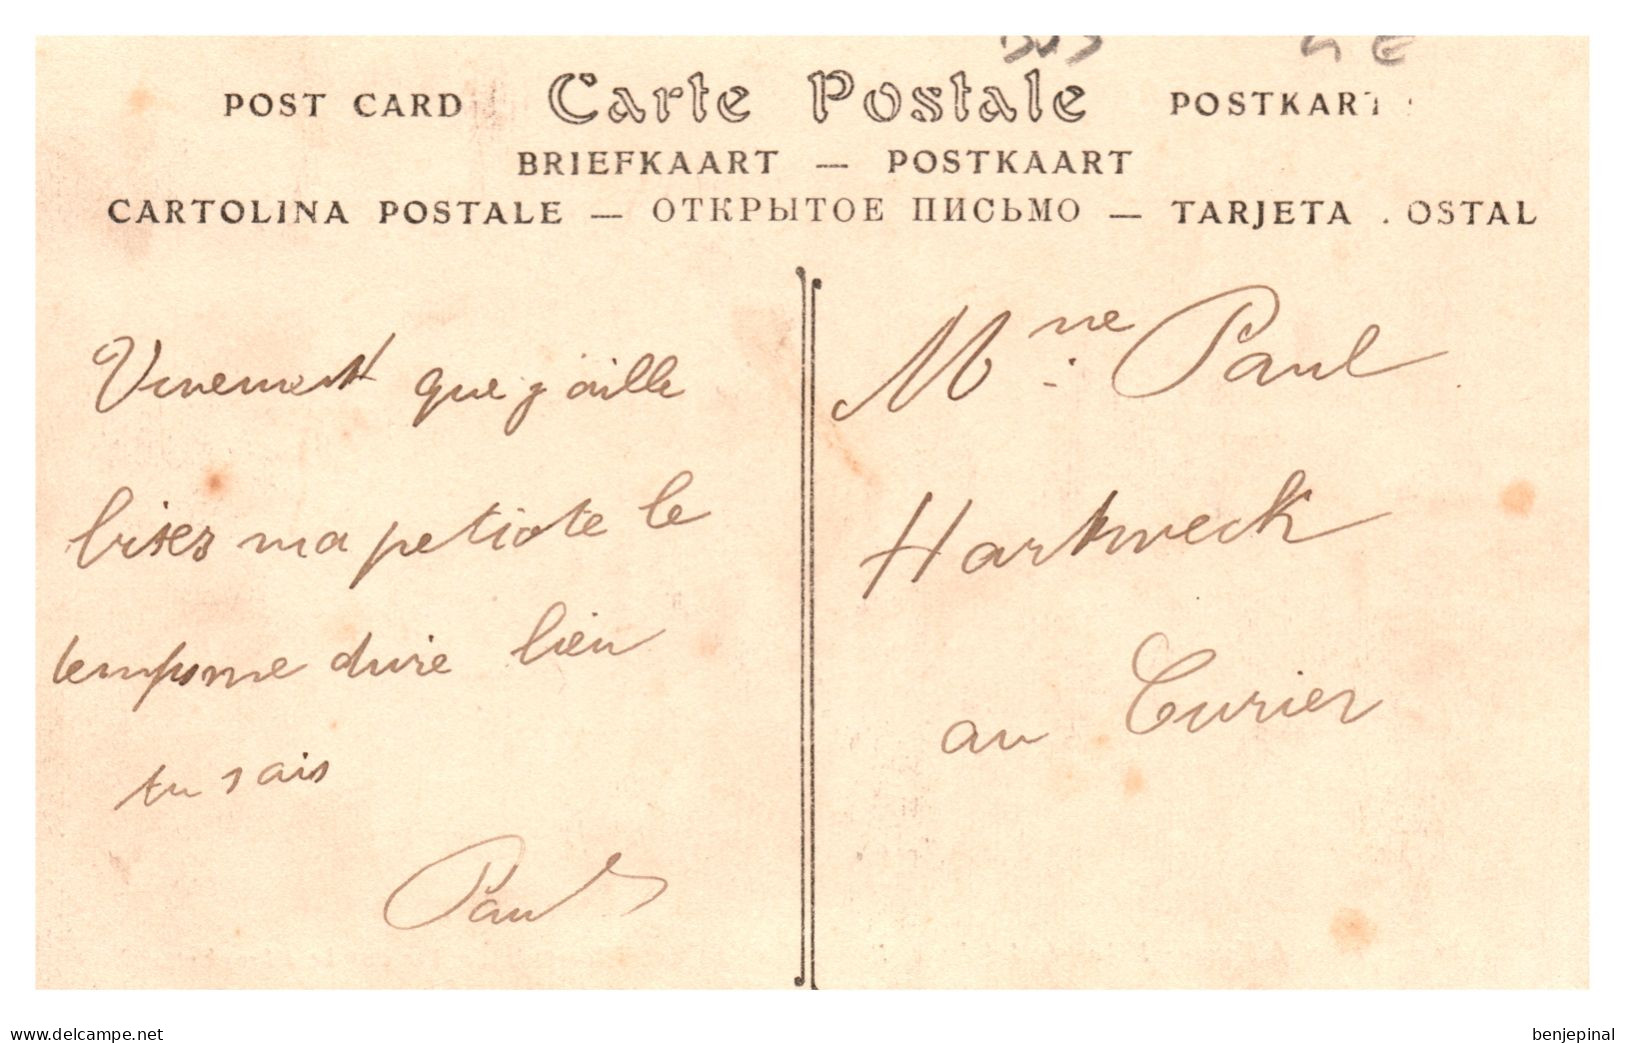 POST CARD Carte Postale POSTKART
BRIEFKAART — POSTKAART
CARTOLINA POSTALE — ОТКРЫТОЕ ПИСЬМО — TARJETA .OSTAL
Vivement que j'aille
bises ma petiote le
temps me dure bien
tu sais
Paul
Mme Paul
Hartweck
au Curier
www.delcampe.net
benjepinal